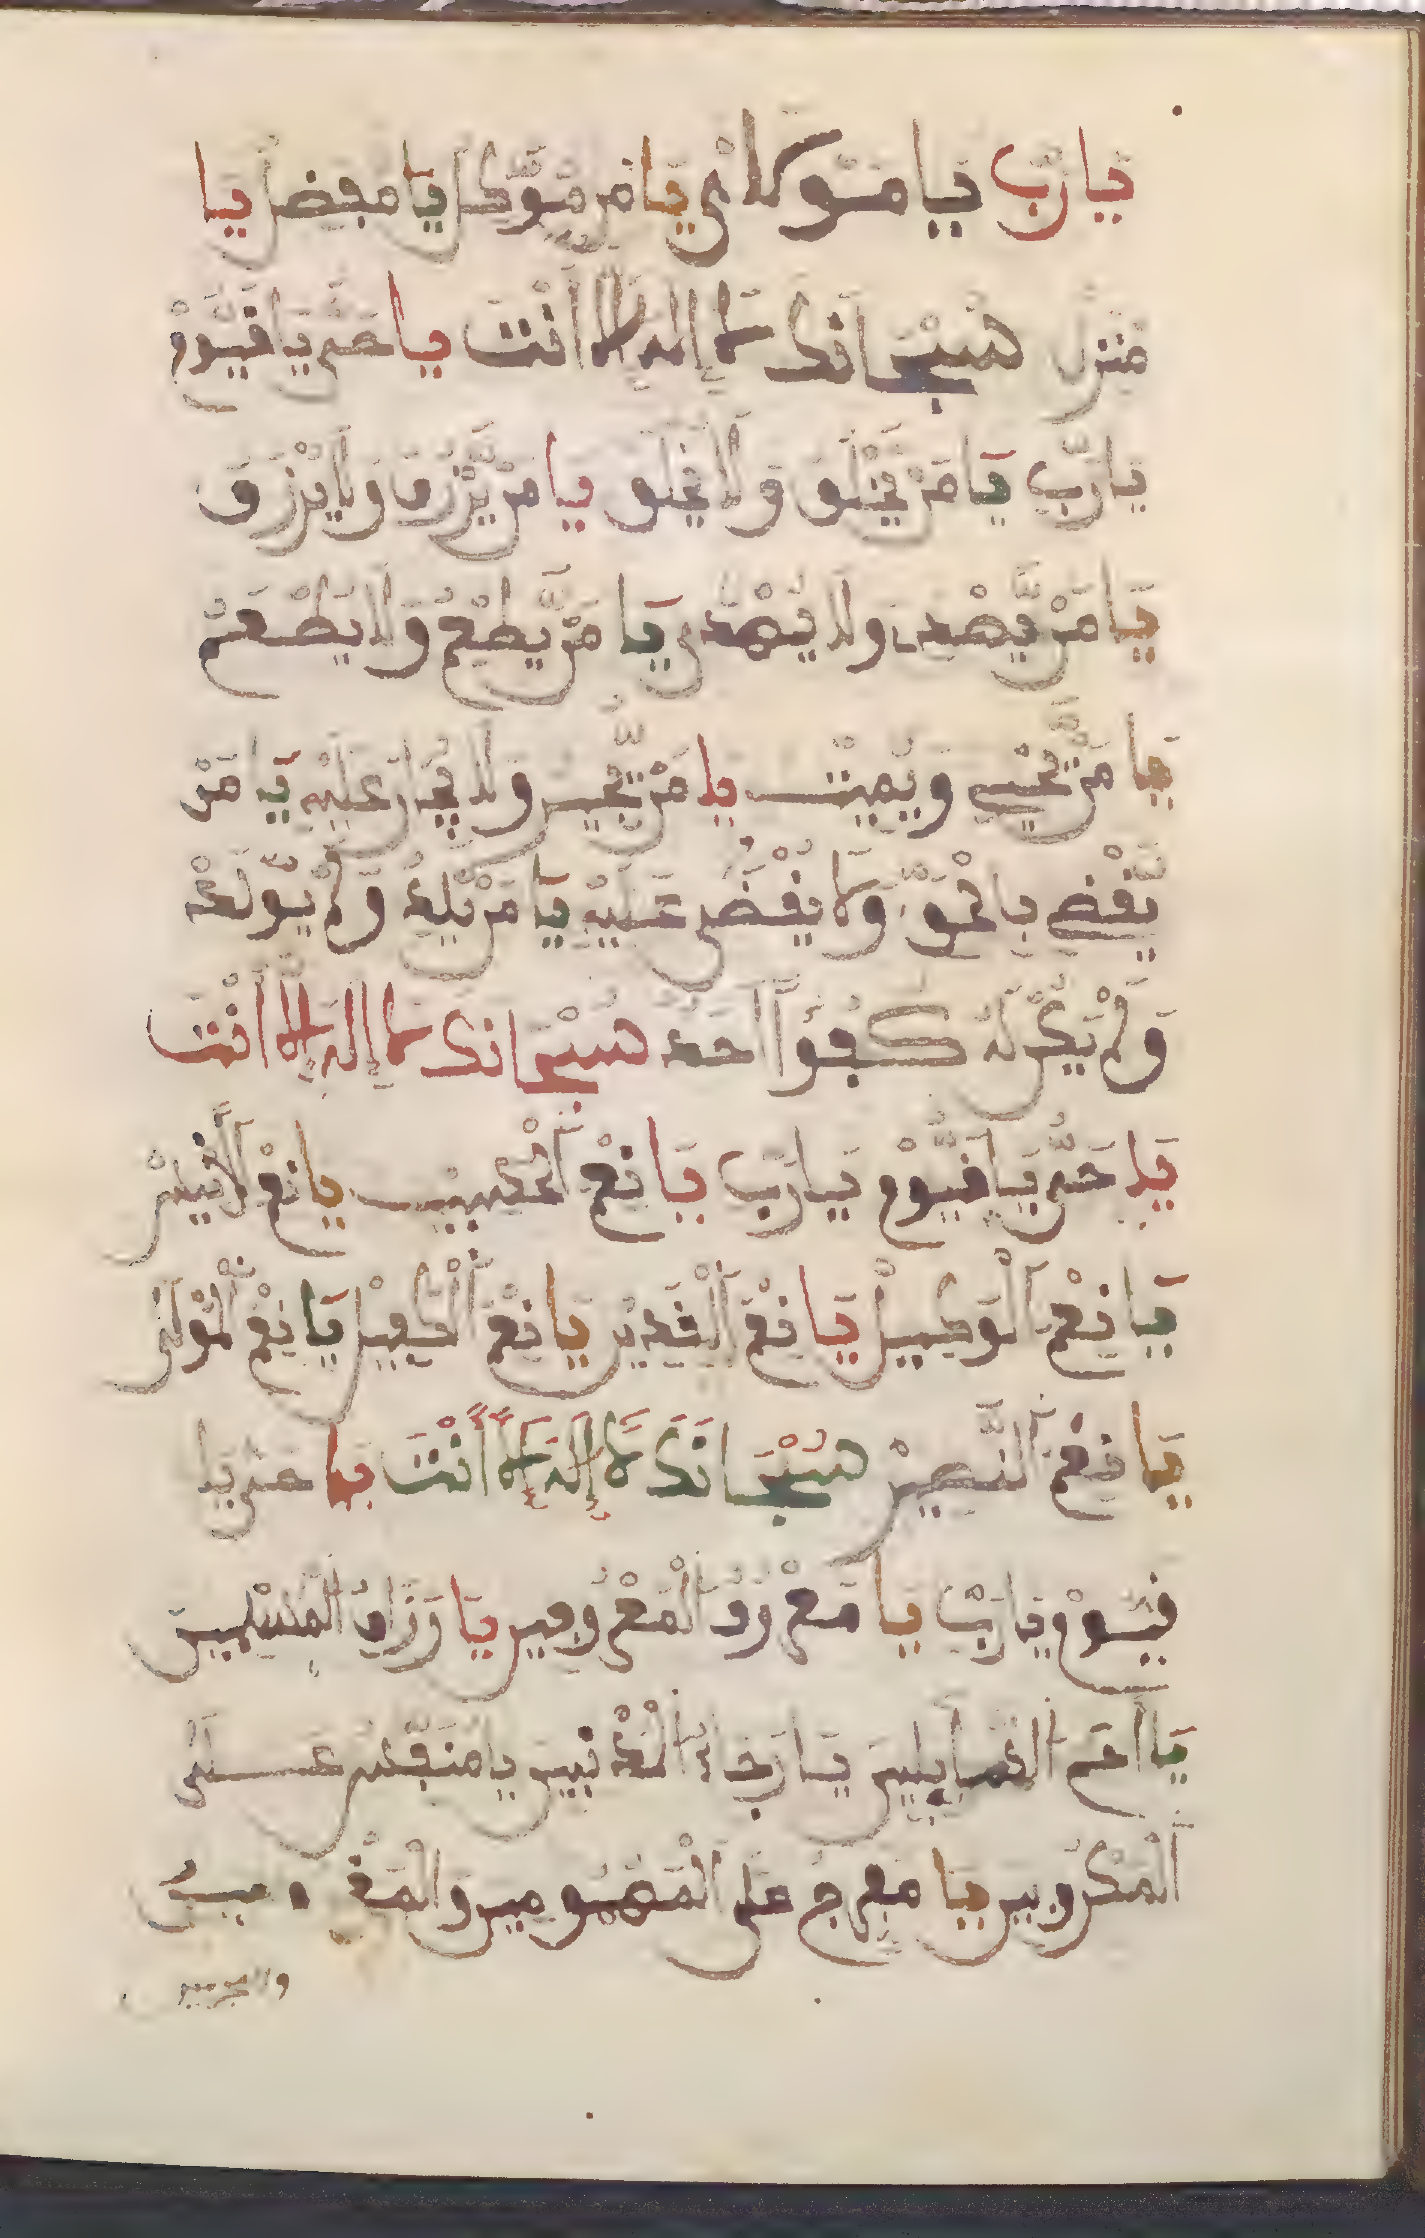 يا رب يا متوكلا يا من يا مفضل يا
منزل سبحانك لا إله إلا أنت يا حي يا قيوم
يا رب يا من يخلق ولا يخلق يا من يرزق ولا يرزق
يا من يهدي ولا يهدى يا من يطعم ولا يطعم
يا من يحيي ويميت يا من يجير ولا يجار عليه يا من
يقضي بالحق ولا يقضى عليه يا من يلد ولم يولد
ولم يكن له كفؤا أحد سبحانك لا إله إلا أنت
يا حي يا قيوم يا رب يا نعم الحسيب يا نعم
يا نعم الوكيل يا نعم القدير يا نعم الكفيل يا نعم المولى
يا نعم النصير سبحانك لا إله إلا أنت يا حي يا
قيوم يا رب يا معروف المعروفين يا رزاق المسلمين
يا يا رجاء المذنبين يا منفس على
المكروبين يا مفرج على المهمومين والمغمومين